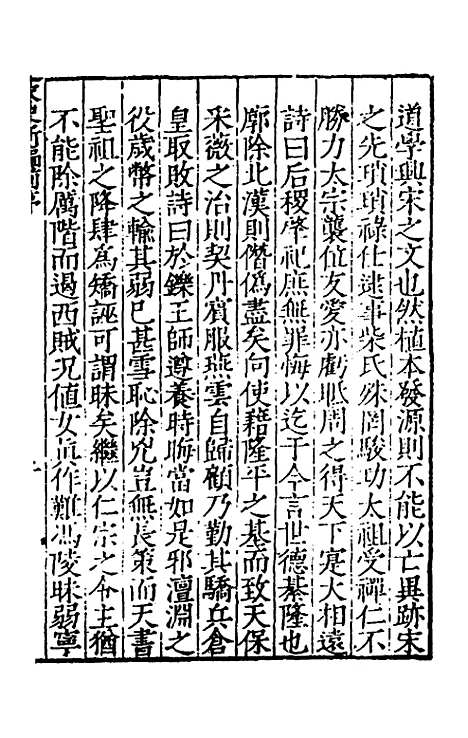 道學興宋之文也然植本發源則不能以亡異跡宋
之先瑣瑣祿仕逮事柴氏殊罔駿功太祖受禪仁不
勝力太宗襲位友愛亦虧眡周之得天下寔大相遠
詩曰后稷肇祀庶無罪悔以迄于今言世德綦隆也
廓除北漢則僭偽盡矣向使藉隆平之基而致天保
采薇之治則契丹賓服燕雲自歸顧乃勤其驕兵倉
皇取敗詩曰於鑠王師遵養時晦當如是邪澶淵之
役歲幣之輸其弱已甚雪恥除兇豈無長策而天書
聖祖之降肆為矯誣可謂昧矣繼以仁宗之令主猶
不能除厲階而遏西賊況値女真作難馮陵昧弱寧
宋史新編前序